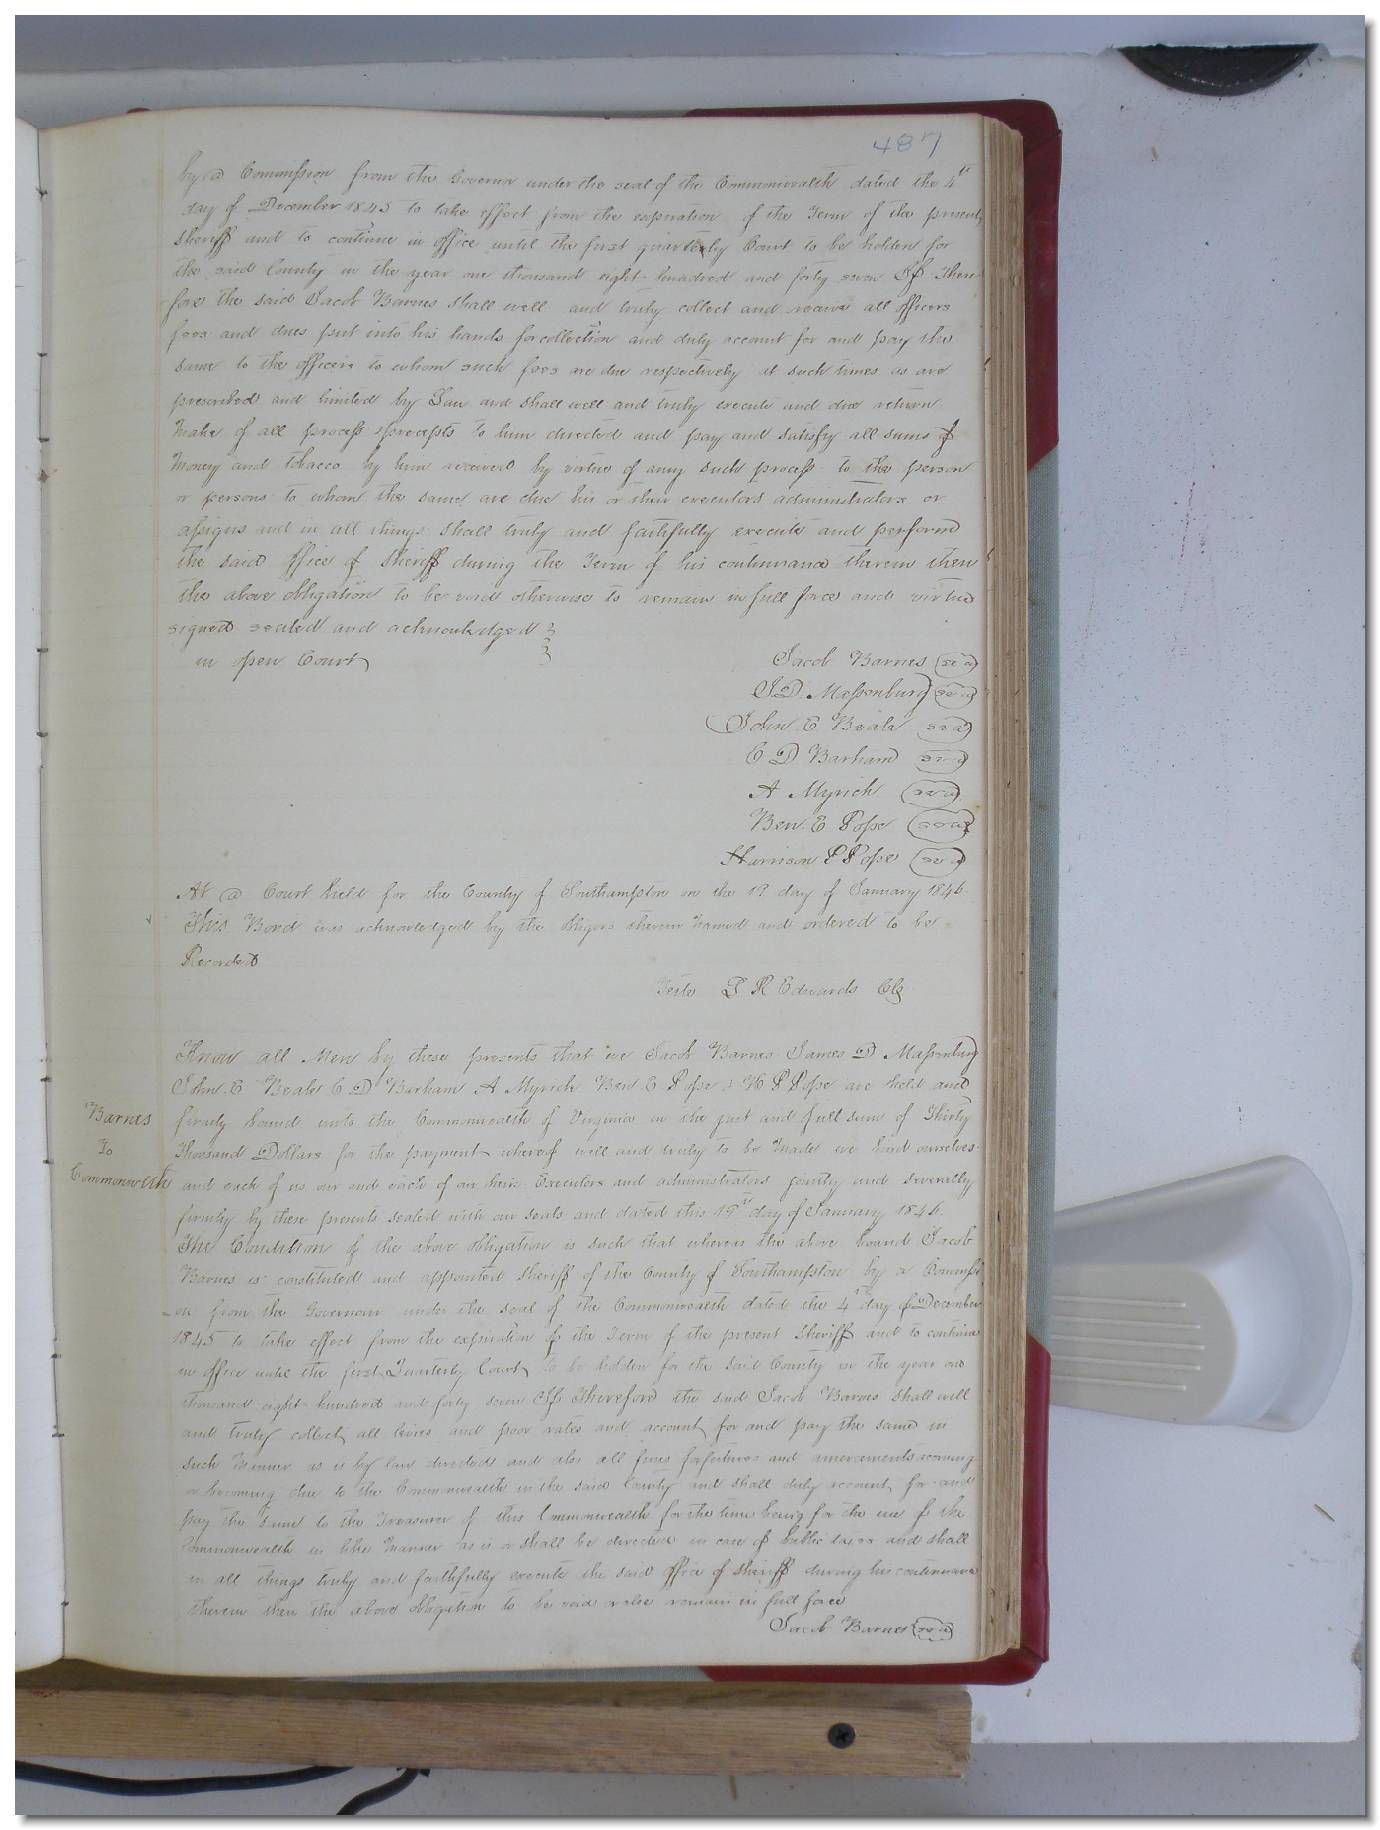 487
by a Commission from the Governor under the seal of the Commonwealth dated the 4th
day of December 1845 to take effect from the expiration of the Term of the present
Sheriff and to continue in office until the first quarterly Court to be holden for
the said County in the year one thousand eight hundred and forty seven If There
fore the said Jacob Barnes shall well and truly collect and receive all officers
fees and dues put into his hands for collection and duly account for and pay the
same to the officers to whom such fees are due respectively at such times as are
prescribed and limited by Law and shall well and truly execute and due return
Make of all process & precepts to him directed and pay and satisfy all sums of
Money and tobacco by him received by virtue of any such process to the person
or persons to whom the same are due his or their executors administrators or
assigns and in all things shall truly and faithfully execute and perform
the said office of Sheriff during the Term of his continuance therein then
the above obligation to be void otherwise to remain in full force and virtue
signed sealed and acknowledged
in open Court
Jacob Barnes (seal)
J D. Massenburg (seal)
John E Beale (seal)
C D Barham (seal)
A Myrick (seal)
Ben. E Pope (seal)
Harrison P Pope (seal)
At a Court held for the County of Southampton on the 19 day of January 1846
This Bond was acknowledged by the obligors therein Named and ordered to be
Recorded
Teste L R Edwards Clk
Know all Men by these presents that we Jacob Barnes James D Massenburg
John E Beale C D Barham A Myrick Ben E Pope & H P Pope are held and
firmly bound unto the Commonwealth of Virginia in the just and full sum of Thirty
Thousand Dollars for the payment whereof well and truly to be Made we bind ourselves
Barnes
To
Commonwealth
and each of us our and each of our heirs Executors and administrators jointly and severally
firmly by these presents sealed with our seals and dated this 19th day of January 1846.
The Condition of the above obligation is such that whereas the above bound Jacob
Barnes is constituted and appointed Sheriff of the County of Southampton by a Commissi
-on from the Governour under the seal of the Commonwealth dated the 4th day of December
1845 to take effect from the expiration of the Term of the present Sheriff and to continue
in office until the first Quarterly Court to be holden for the said County in the year one
thousand eight hundred and forty seven If Therefore the said Jacob Barnes shall well
and truly collect all levies and poor rates and account for and pay the same in
such Manner as is by law directed and also all fines forfeitures and amercements accruing
or becoming due to the Commonwealth in the said County and shall duly account for and
pay the same to the Treasurer of this Commonwealth for the time being for the use of the
Commonwealth in like Manner as is or shall be directed in case of public taxes and shall
in all things truly and faithfully execute the said office of Sheriff during his continuance
therein then the above obligation to be void or else remain in full force
Jacob Barnes (seal)